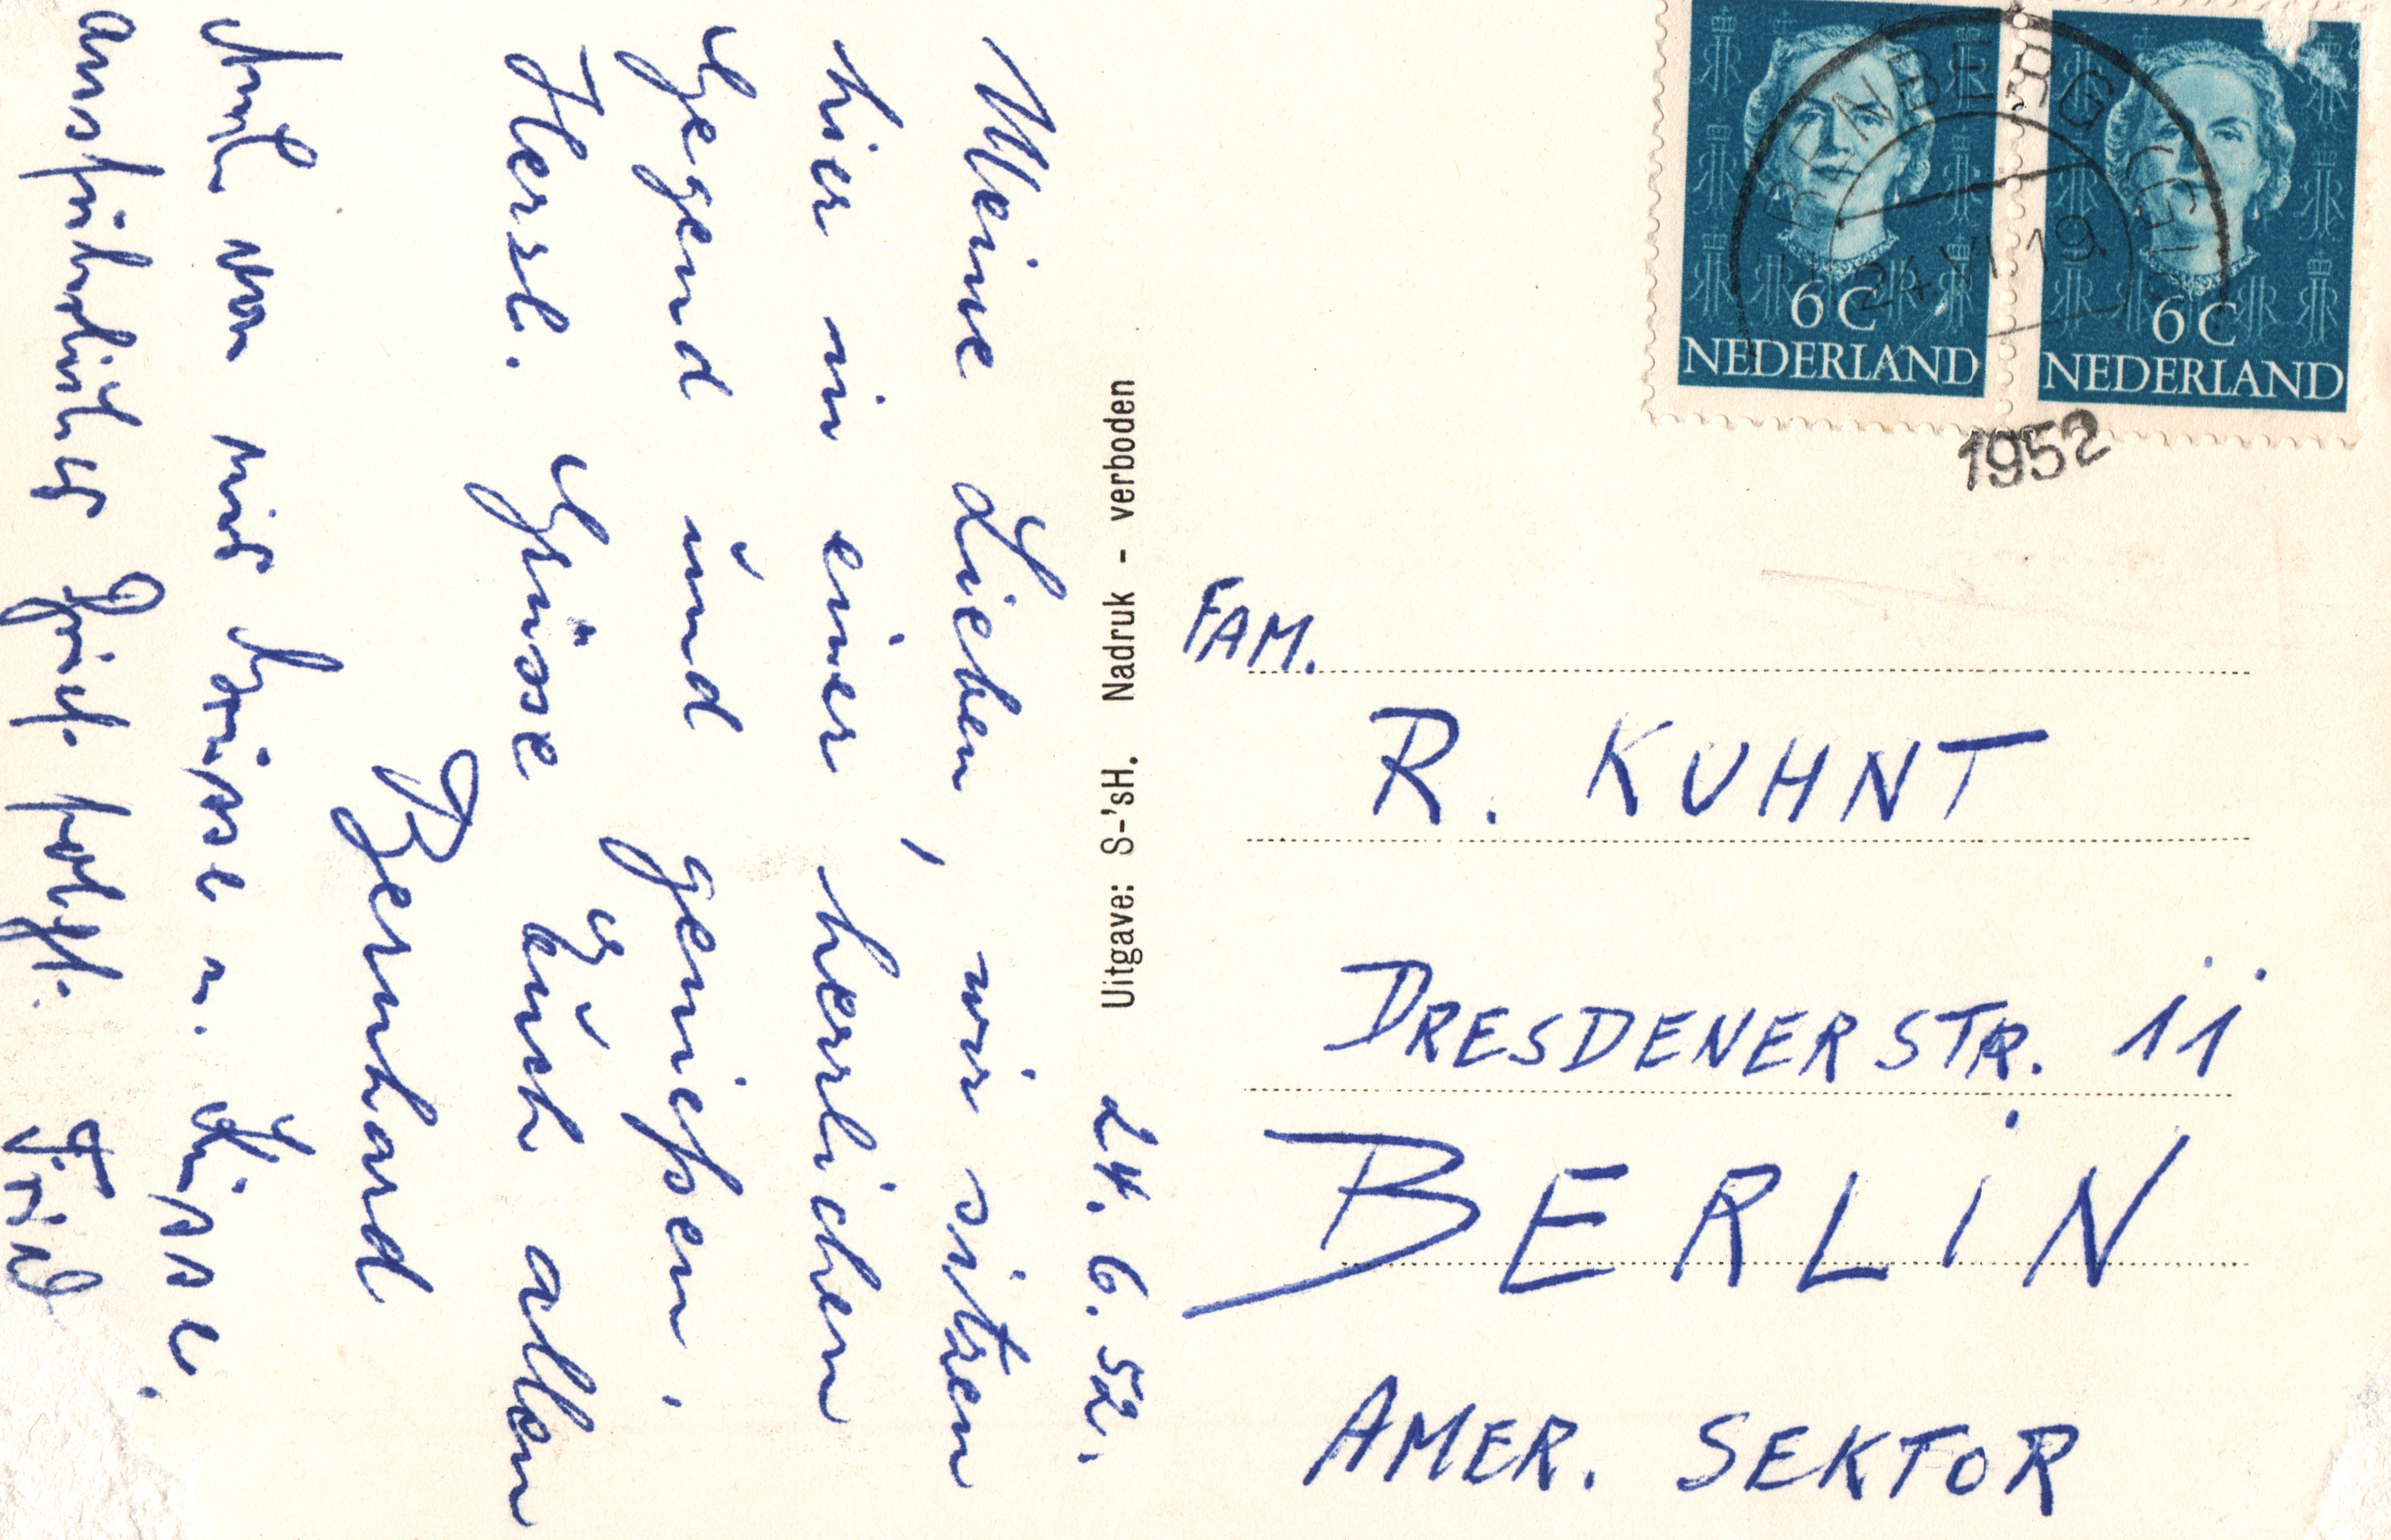 6 C
NEDERLAND
6 C
NEDERLAND
RENBERG
24 VI 19.
1952
Uitgave: S-'sH. Nadruk - verboden
24. 6. 52.
Meine Lieben, wir sitzen
hier in einer herrlichen
Gegend und genießen.
Herzl. Grüsse Euch allen
Bernhard
Auch von mir Grüsse u. Küsse.
ausführlicher Brief folgt.
FAM.
R. KUHNT
DRESDENERSTR. 11
BERLIN
AMER. SEKTOR